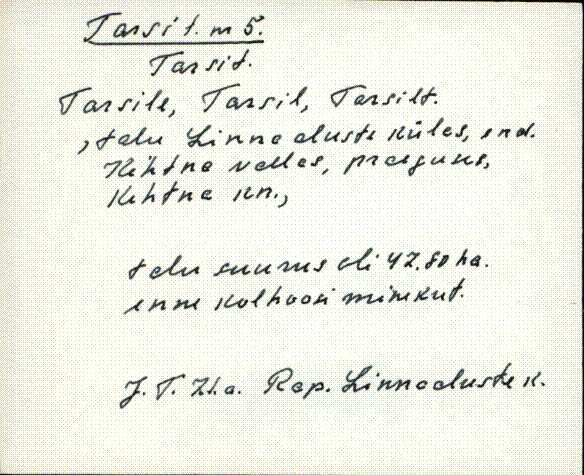 Tarsi t. m 5.
Tarsit.
Tarsile, Tarsil, Tarsilt.
, talu Linnaaluste külas, end.
Kehtna vallas, praeguses,
Kehtna kn.,
talu suurus oli 42.80 ha.
enne kolhoosi minekut.
J. T. Rap. Linnaaluste k.